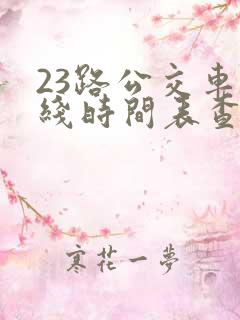 23路公交車
綫時間表查
寒花一夢